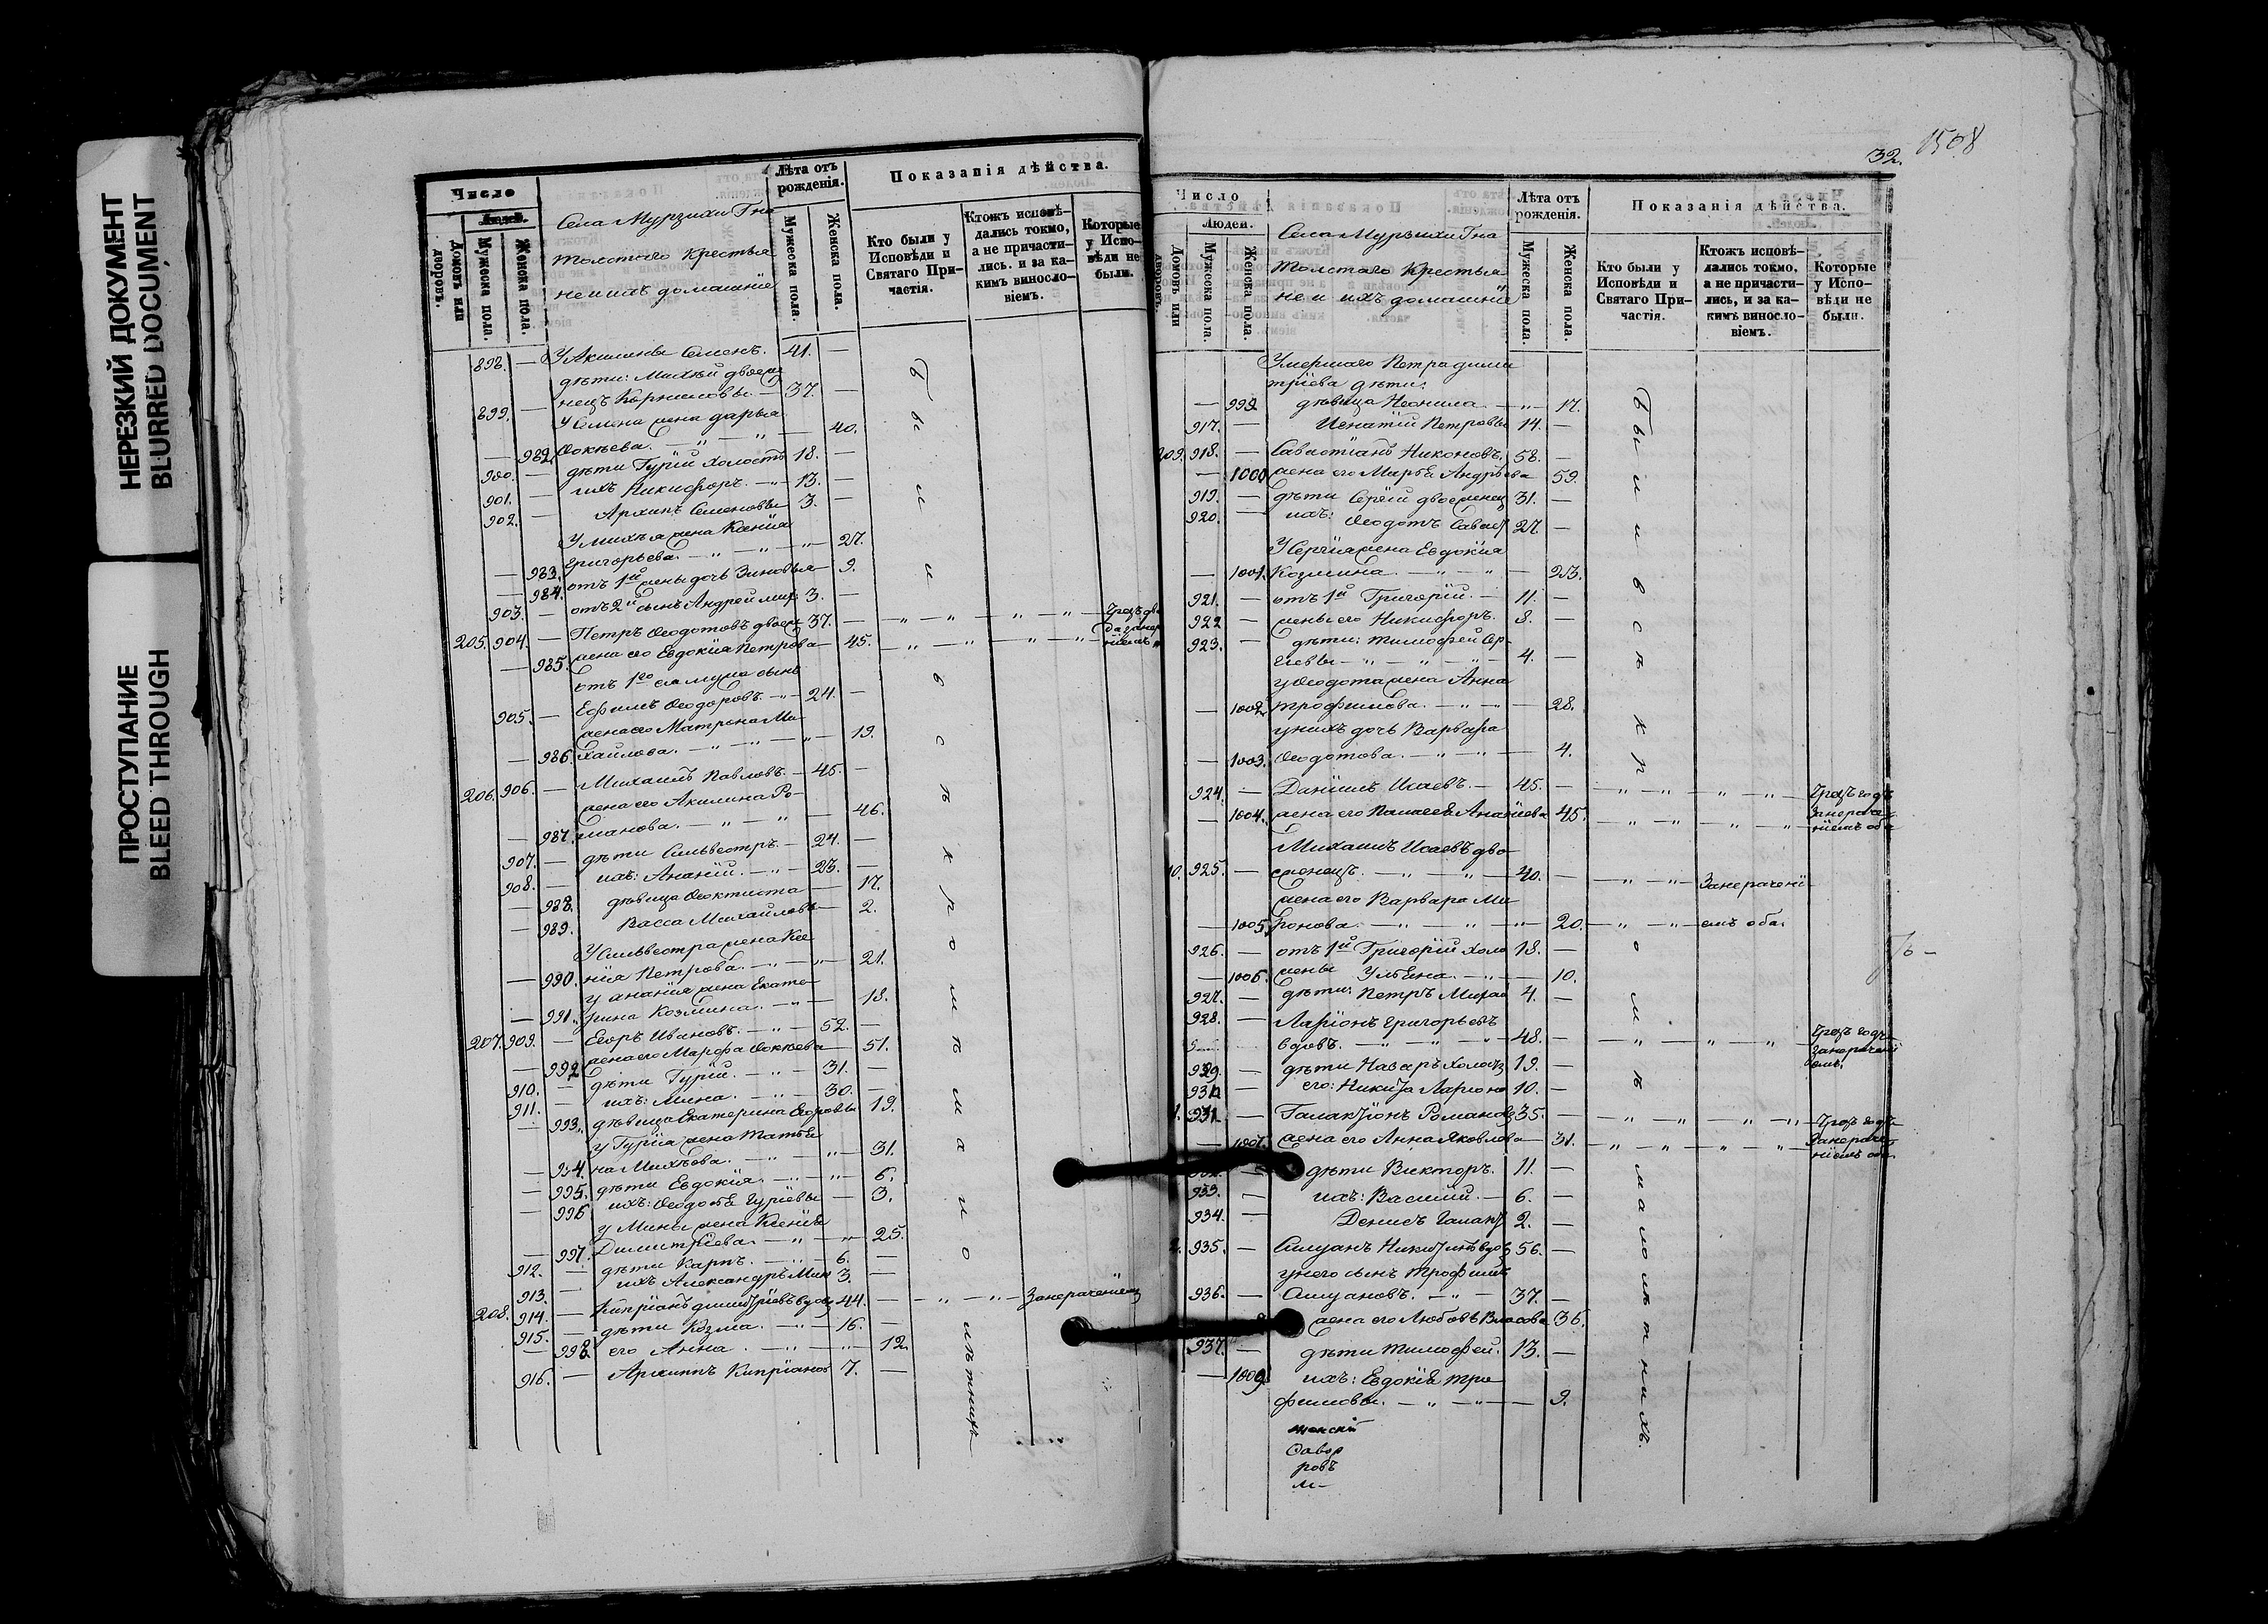 НЕРЕЗКИЙ ДОКУМЕНТ
BLURRED DOCUMENT
ПРОСТУПАНИЕ
BLEED THROUGH
Число
Людей.
Домовъ или дворовъ.
Мужеска пола.
Женска пола.
Села Мурзихи Гна
Толстого Крестья
не и ихъ домашніе
Лѣта отъ рожденія.
Мужеска пола.
Женска пола.
Показанія дѣйства.
Кто были у Исповѣди и Святаго Причастія.
Ктожъ исповѣдались токмо, а не причастились. и за какимъ винословіемъ.
Которые у Исповѣди не были.
898. — У Акилины Семенъ. 41. —
дѣти: Михей двоеже
899. — нецъ Корниловы. — 37. —
У Семена жена Дарья
— 982. Фокѣева. — " — " — 40.
900. — дѣти Гурій холостъ 18. —
901. — ихъ Никифоръ. — " — 13. —
902. — Архипъ Семеновы 3. —
У Михѣя жена Ксенія
— 983. Григорьева. — " — " — " — 27.
— 984. отъ 1й жены дочь Зиновья — 9.
903. — отъ 2й сынъ Андрей Мих 3. —
205. 904. — Петръ Ѳеодотовъ двоеж 37. —
— 985. жена его Евдокія Петрова — 45.
отъ 1го ея мужа сынъ
905. — Ефимъ Ѳеодоровъ. — " — 24. —
жена его Матрена Ми
— 986. хайлова. — " — " — " — 19.
206. 906. — Михаилъ Павловъ. — 45. —
жена его Акилина Ро-
— 987. манова. — " — " — 46.
907. — дѣти Сильвестръ. — 24. —
908. — ихъ: Ананій. — " — 23. —
— 988. дѣвица Ѳеоктиста — 17.
— 989. Васса Михайловы — 2.
У Сильвестра жена Ксе
— 990. нія Петрова. — " — " — 21.
у Ананія жена Екате-
— 991. рина Козмина. — " — 18.
207. 909. — Егоръ Ивановъ. — " — 52. —
— 992. жена его Марфа Фокѣева — 51.
910. — дѣти Гурій. — " — 31. —
911. — ихъ: Мина. — " — 30. —
— 993. дѣвица Екатерина Егоровы 19.
у Гурія жена Татья
— 994. на Михѣева. — " — " — 31.
— 995. дѣти Евдокія. — " — " — 6.
— 996. ихъ: Ѳеодосья Гуріевы — 3.
у Мины жена Ксенія
— 997. Димитріева. — " — " — 25.
912. — дѣти Карпъ. — " — 6. —
913. — ихъ Александръ Мин 3. —
208. 914. — Кипріанъ Димитріевъ вдов 44. — — " — " — За нераченіем
915. — дѣти Козма. — " — 16. —
— 998. его Анна. — " — " — 12.
916. — Архиппъ Кипріанов 7. —
Были и въ скромъ малолѣтнихъ
32. 1508
Число
Людей.
Домовъ или дворовъ.
Мужеска пола.
Женска пола.
Села Мурзихи Гна
Толстого Крестья
не и ихъ домашніе
Лѣта отъ рожденія.
Мужеска пола.
Женска пола.
Показанія дѣйства.
Кто были у Исповѣди и Святаго Причастія.
Ктожъ исповѣдались токмо, а не причастились, и за какимъ винословіемъ.
Которые у Исповѣди не были.
Умершаго Петра Дими
тріева дѣти:
— 999. дѣвица Неонила. — " — 17.
917. — Игнатій Петровы 14. —
209. 918. — Савастіанъ Никоновъ. 58. —
— 1000. жена его Марья Андрѣева 59.
919. — дѣти Сергій двоеженец 31. —
920. — ихъ: Ѳеодотъ Савас 27. —
У Сергія жена Евдокія
— 1001. Козмина. — " — " — 23.
921. — отъ 1й Григорій. — 11. —
922. — жены его Никифоръ. 8. —
923. — дѣти: Тимофей Сер-
гіевы — " — " — " — 4. —
у Ѳеодота жена Анна
— 1002. Трофимова. — " — " — 28.
у нихъ дочь Варвара
— 1003. Ѳеодотова. — " — " — 4.
924. — Даніилъ Исаевъ. — 45. —
— 1004. жена его Пелагея Ананіева 45.
Михаилъ Исаевъ дво-
10. 925. — еженецъ. — " — " — 40. — — " — " — За нерачені-
жена его Варвара Ми
— 1005. ронова. — " — " — " — 20. — " — " — емъ оба.
926. — отъ 1й Григорій холо 18. —
— 1006. жены Ульяна. — " — 10.
927. — дѣти: Петръ Михай 4. —
928. — Ларіонъ Григорьевъ
вдовъ. — " — " — " — 48. —
929. — дѣти Назаръ холост 19. —
930. — его: Никита Ларіоно 10. —
1. 931. — Галактіонъ Романов 35. —
— 1007. жена его Анна Яковлева — 31.
— дѣти Викторъ. 11. —
933. — ихъ: Василий. — 6. —
934. — Денисъ Галакт 2. —
2. 935. — Силуанъ Никитинъ вдов 56. —
у него сынъ Трофимъ
936. — Силуановъ. — " — 37. —
жена его Любовь Власова 36.
937. — дѣти Тимофей. 13. —
— 1009. ихъ: Евдокія Тро
фимовы. — " — " — 9.
Были и въ скромъ малолѣтнихъ.